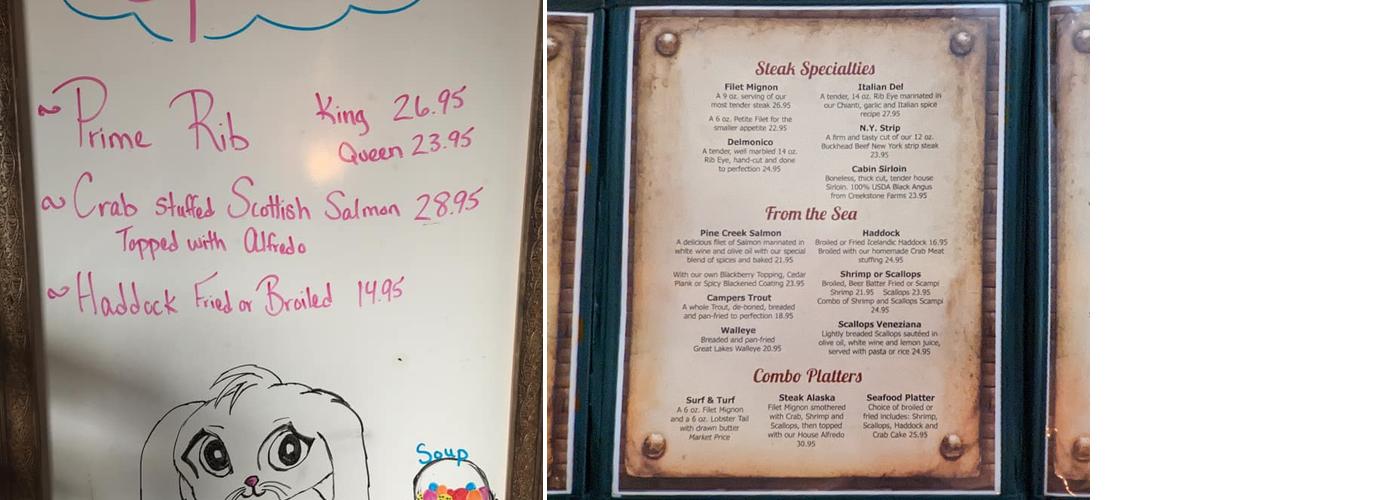 ~ Prime Rib King 26.95
Queen 23.95
~ Crab Stuffed Scottish Salmon 28.95
Topped with Alfredo
~ Haddock Fried or Broiled 14.95
Soup
Steak Specialties
Filet Mignon
A 9 oz. serving of our
most tender steak 26.95
A 6 oz. Petite Filet for the
smaller appetite 22.95
Delmonico
A tender, well marbled 14 oz.
Rib Eye, hand-cut and done
to perfection 24.95
Italian Del
A tender, 14 oz. Rib Eye marinated in
our Chianti, garlic and Italian spice
recipe 27.95
N.Y. Strip
A firm and tasty cut of our 12 oz.
Buckhead Beef New York strip steak
23.95
Cabin Sirloin
Boneless, thick cut, tender house
Sirloin. 100% USDA Black Angus
from Creekstone Farms 23.95
From the Sea
Pine Creek Salmon
A delicious filet of Salmon marinated in
white wine and olive oil with our special
blend of spices and baked 21.95
With our own Blackberry Topping, Cedar
Plank or Spicy Blackened Coating 23.95
Campers Trout
A whole Trout, de-boned, breaded
and pan-fried to perfection 18.95
Walleye
Breaded and pan-fried
Great Lakes Walleye 20.95
Haddock
Broiled or Fried Icelandic Haddock 16.95
Broiled with our homemade Crab Meat
stuffing 24.95
Shrimp or Scallops
Broiled, Beer Batter Fried or Scampi
Shrimp 21.95 Scallops 23.95
Combo of Shrimp and Scallops Scampi
24.95
Scallops Veneziana
Lightly breaded Scallops sautéed in
olive oil, white wine and lemon juice,
served with pasta or rice 24.95
Combo Platters
Surf & Turf
A 6 oz. Filet Mignon
and a 6 oz. Lobster Tail
with drawn butter
Market Price
Steak Alaska
Filet Mignon smothered
with Crab, Shrimp and
Scallops, then topped
with our House Alfredo
30.95
Seafood Platter
Choice of broiled or
fried includes: Shrimp,
Scallops, Haddock and
Crab Cake 25.95